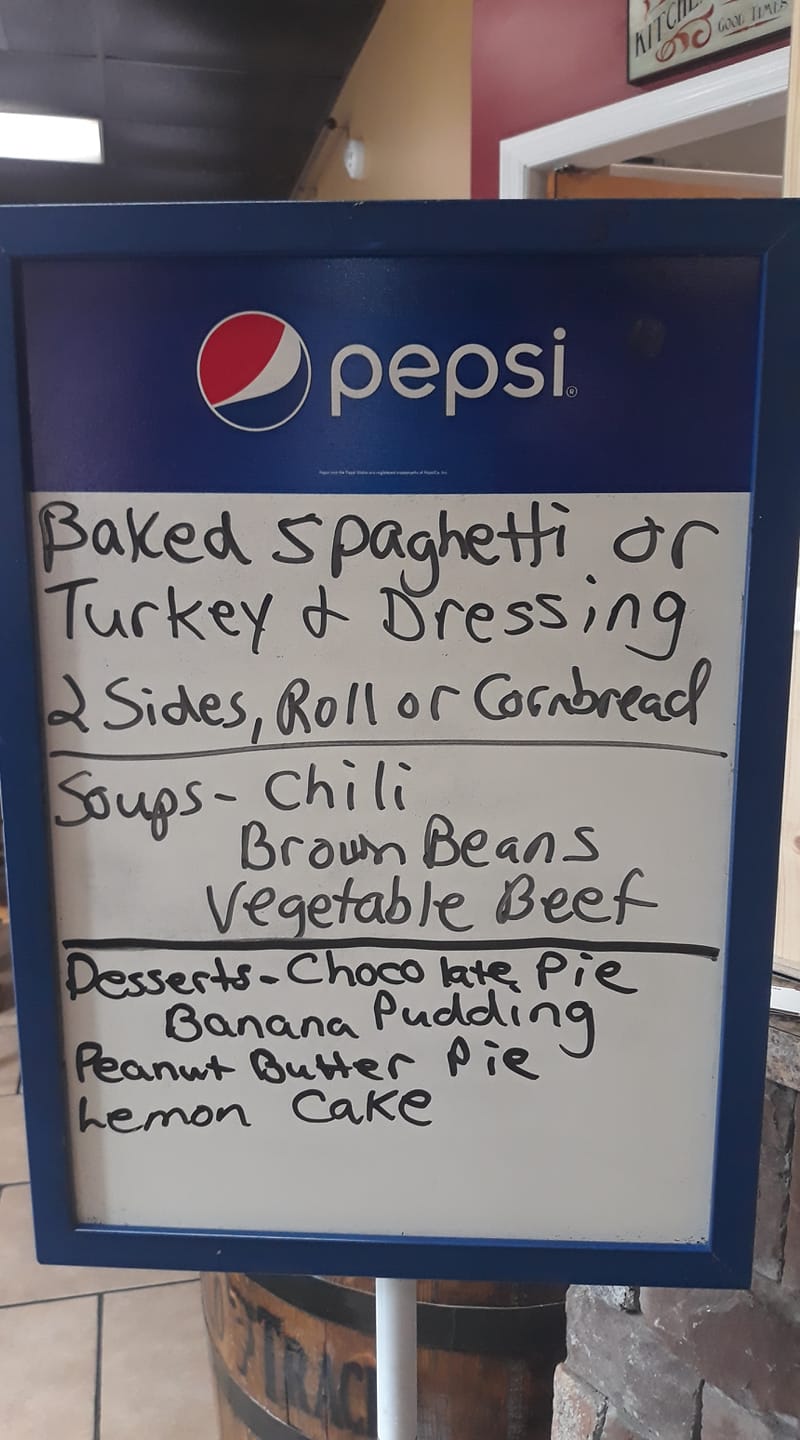 KITCHEN
GOOD TIMES
pepsi
Baked Spaghetti or
Turkey & Dressing
2 Sides, Roll or Cornbread
Soups- Chili
Brown Beans
Vegetable Beef
Desserts- Chocolate Pie
Banana Pudding
Peanut Butter Pie
Lemon Cake